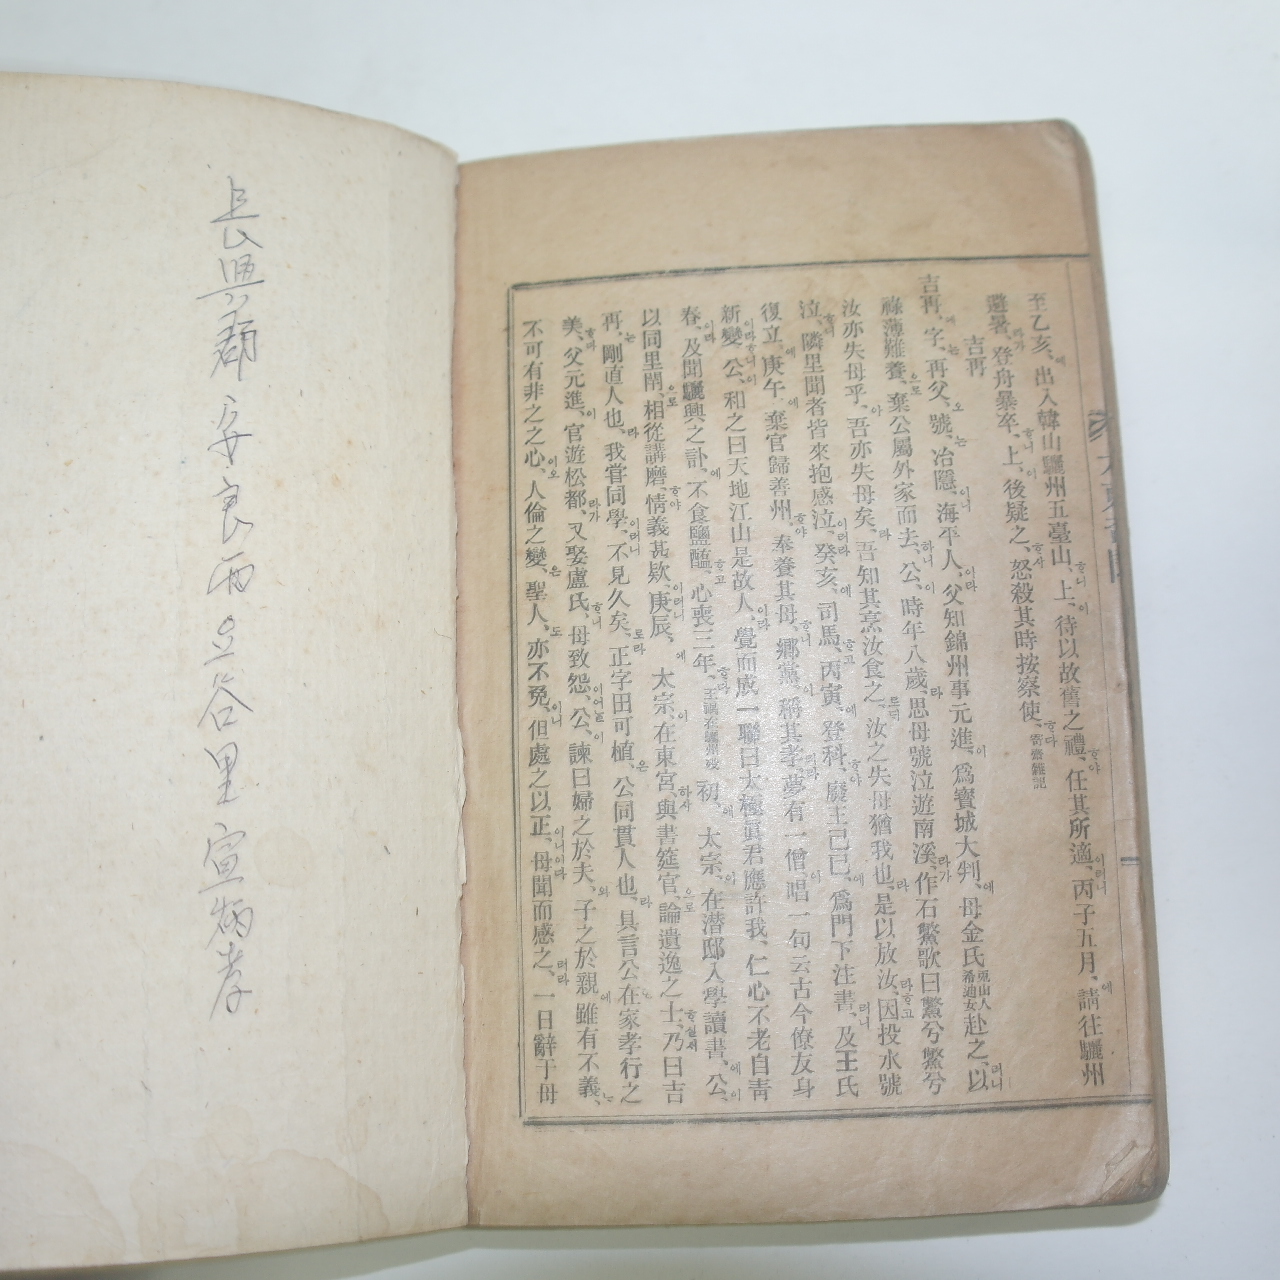 至乙亥、에出入韓山驪州五臺山、ᄒᆞ니上、이待以故舊之禮、ᄒᆞ야任其所適、이러니丙子五月、에請往驪州
避暑、라가登舟暴卒、ᄒᆞ니上、이後疑之、ᄒᆞ사怒殺其時按察使、ᄒᆞ다寄齋雜記
吉再
吉再、에字、는再父、오號、는冶隱、이니海平人、이라父知錦州事元進、이爲寶城大判、에母金氏兎山人希迪女赴之、러니以
祿薄難養、으로棄公屬外家而去、하니公、이時年八歲、라思母號泣遊南溪、라가作石鱉歌曰鱉兮鱉兮
汝亦失母乎、아吾亦失母矣、라吾知其烹汝食之、로되汝之失母猶我也、라是以放汝、라ᄒᆞ고因投水號
泣、ᄒᆞ니隣里聞者皆來抱感泣、이러라癸亥、에司馬、ᄒᆞ고丙寅、에登科、ᄒᆞ야廢王己巳、에爲門下注書、러니及王氏
復立、에庚午、에棄官歸善州、ᄒᆞ야奉養其母、ᄒᆞ니鄕黨、이稱其孝、러라夢有一僧、이唱一句云古今僚友身
新變、이라ᄒᆞ니公、이和之曰天地江山是故人、이라覺而成一聯曰太極眞君應許我、仁心不老自靑
春、이라及聞驪興之訃、에不食鹽醢、ᄒᆞ고心喪三年、ᄒᆞ다王禑在驪州歿初、에太宗、이在潜邸入學讀書、에公、이
以同里閈、으로相從講磨、ᄒᆞ야情義甚欵、이러니庚辰、에太宗、이在東宮、하사與書筵官、으로論遺逸之士、ᄒᆞ실ᄉᆡ乃曰吉
再、는剛直人也、라我甞同學、이러니不見久矣、로라正字田可植、은公同貫人也、라具言公在家孝行之
美、ᄒᆞ다父元進、이官遊松都、라가又娶盧氏、ᄒᆞ니母致怨、이어늘公、이諫曰婦之於夫、와子之於親에雖有不義、나
不可有非之之心、이오人倫之變、은聖人、도亦不免、이니但處之以正、이니이다母聞而感之、러라一日辭于母
長興郡 安良面 
谷里 宣炳孝